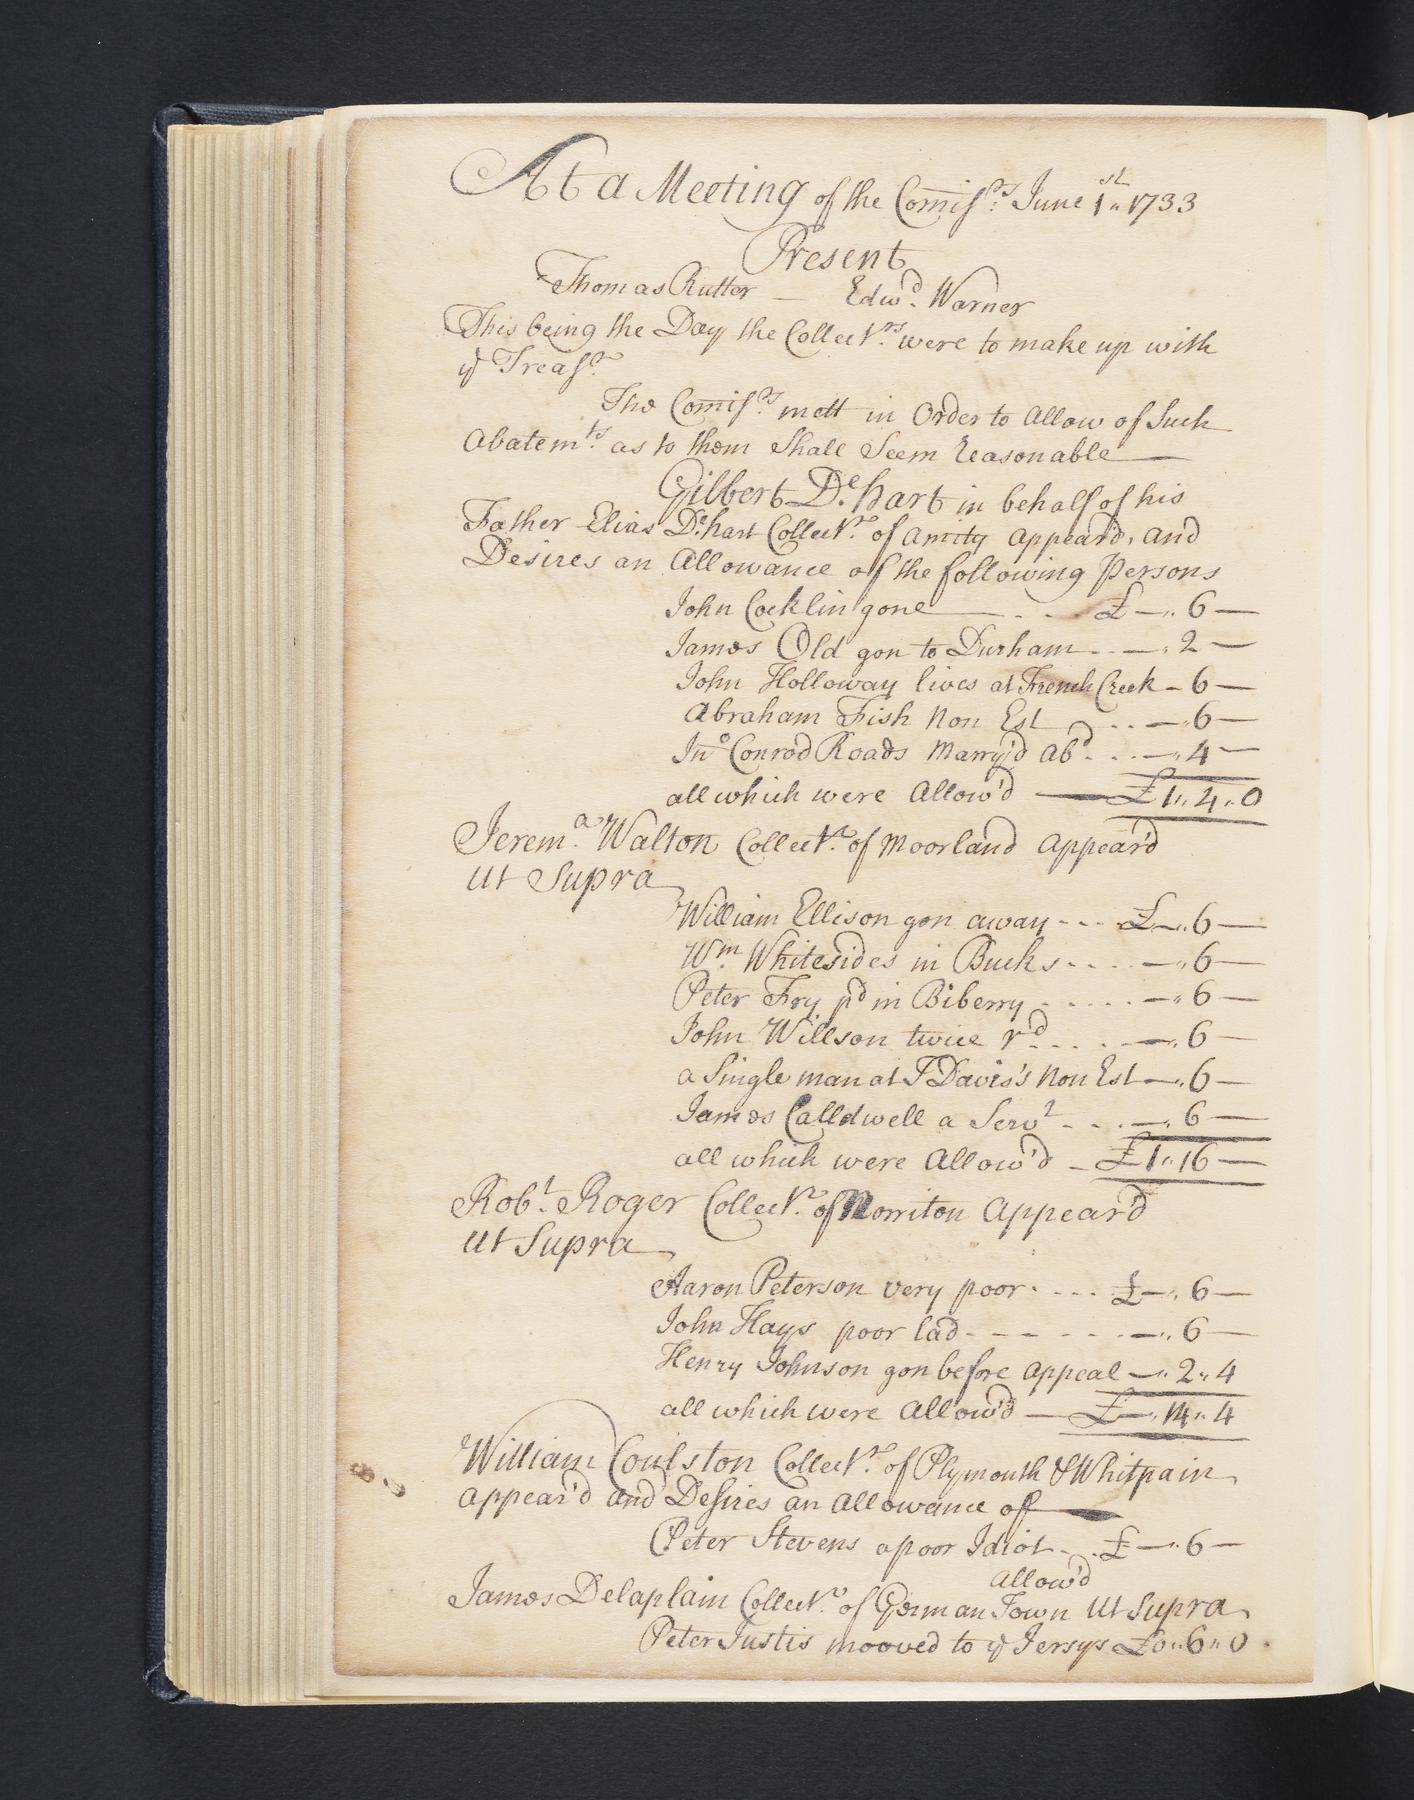 At a Meeting of the Comis.rs June 1st 1733
Present
Thomas Rutter — Edwd. Warner
This being the Day the Collectrs. were to make up with
ye Treasr.
The Comisrs. mett in Order to allow of Such
Abatemts. as to them Shall Seem reasonable —
Gilbert De.hart in behalf of his
Father Elias De.hart Collectr. of Amity appear'd, and
Desires an Allowance of the following Persons
John Cocklin gone — £ — „ 6 —
James Old gon to Durham - - — „ 2 —
John Holloway lives at French Creek - 6 —
Abraham Fish Non Est - - — „ 6 —
Jno Conrod Roads Marry'd abd. - - — „ 4 —
all which were Allow'd — £1 „ 4 „ 0
Jerema. Walton Collectr. of Moorland appear'd
Ut Supra
William Ellison gon away - - - £ — „ 6 —
Wm. Whitesides in Bucks - - - — „ 6 —
Peter Fry pd in Biberry - - - - — „ 6 —
John Willson twice rd - - - — „ 6 —
a Single man at T Davis's Non Est — „ 6 —
James Calldwell a Servt - - — „ 6 —
all which were Allow'd — £1 „ 16 —
Robt. Roger Collectr. of Norriton Appear'd
Ut Supra
Aaron Peterson very poor - - - £ — „ 6 —
John Hays poor lad - - - - - — „ 6 —
Henry Johnson gon before appeal — „ 2 „ 4
all which were Allow'd — £ — „ 14 „ 4
William Coulston Collectr. of Plymouth & Whitpain
appear'd and Desires an Allowance of —
Peter Stevens a poor Idiot - - £ — „ 6 —
Allow'd
James Delaplain Collectr. of German Town Ut Supra
Peter Justis mooved to ye Jersys £0 „ 6 „ 0